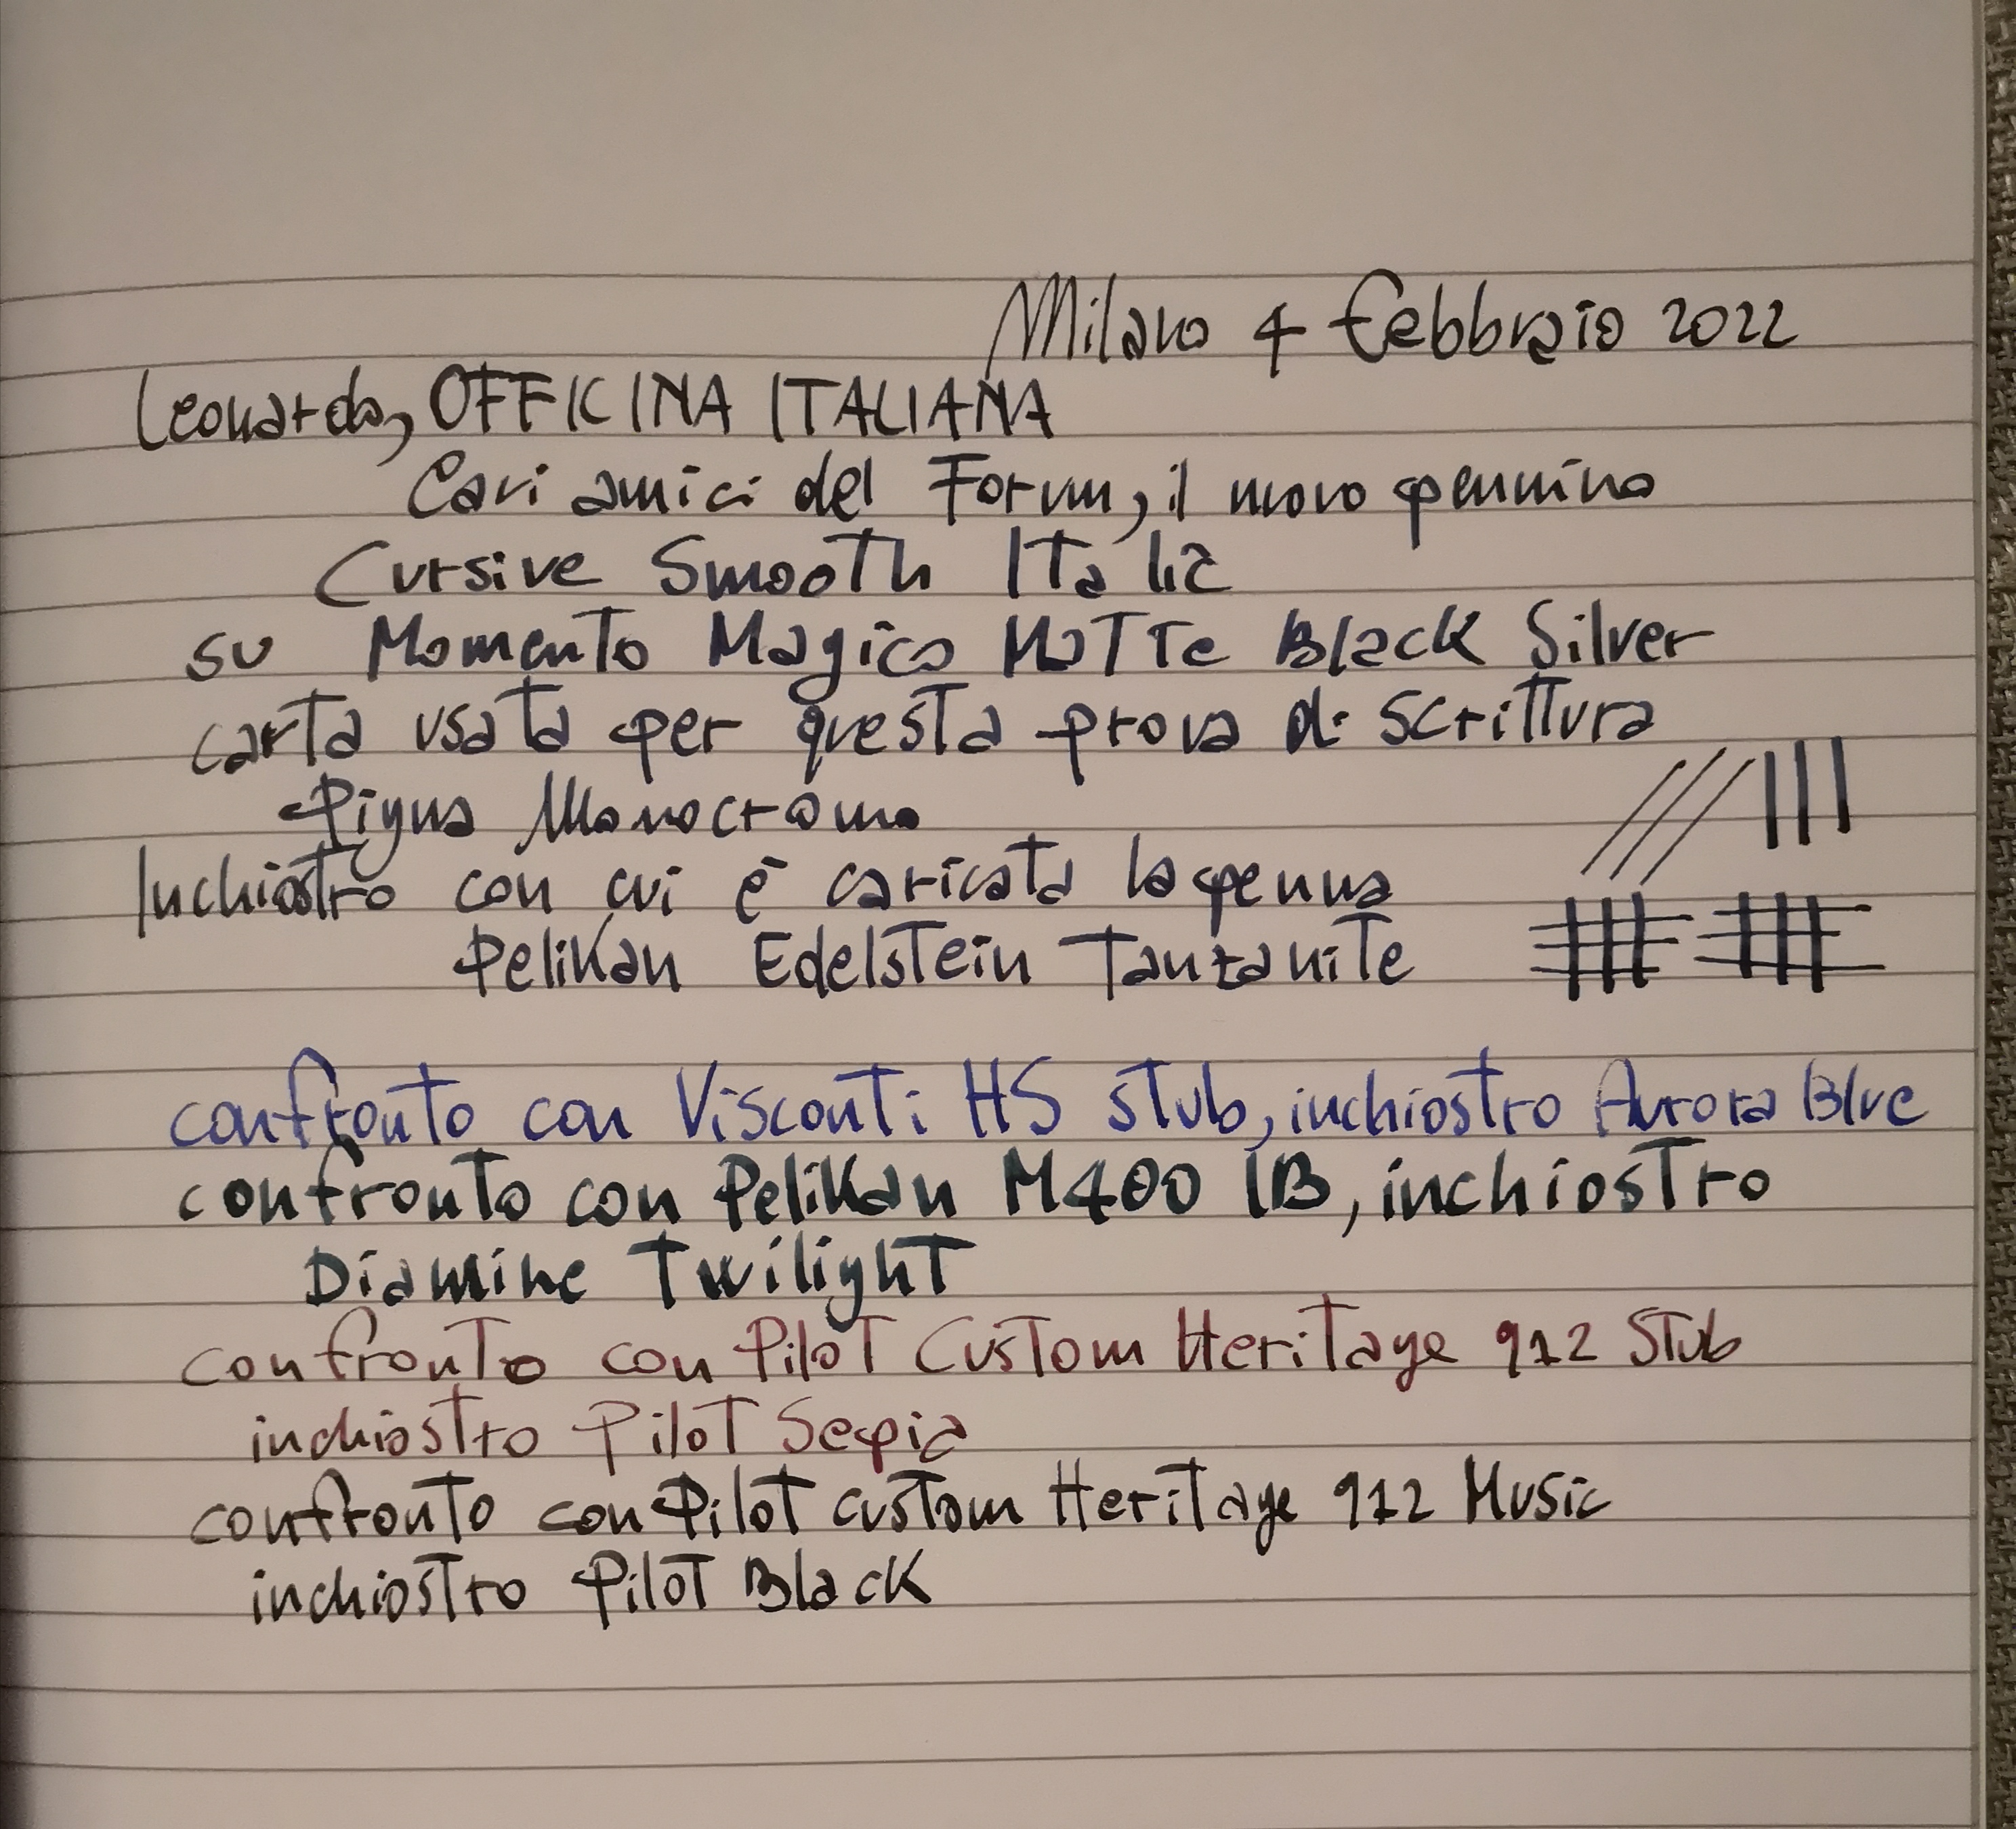 Milano 4 febbraio 2022
Leonardo, OFFICINA ITALIANA
Cari amici del Forum, il nuovo pennino
Cursive Smooth Italic
su Momento Magico Matte Black Silver
carta usata per questa prova di scrittura
Pigna Monocromo
Inchiostro con cui è caricata la penna
Pelikan Edelstein Tanzanite
confronto con Visconti HS stub, inchiostro Aurora Blue
confronto con Pelikan M400 IB, inchiostro
Diamine Twilight
confronto con Pilot Custom Heritage 912 Stub
inchiostro Pilot Sepia
confronto con Pilot custom Heritage 912 Music
inchiostro Pilot Black